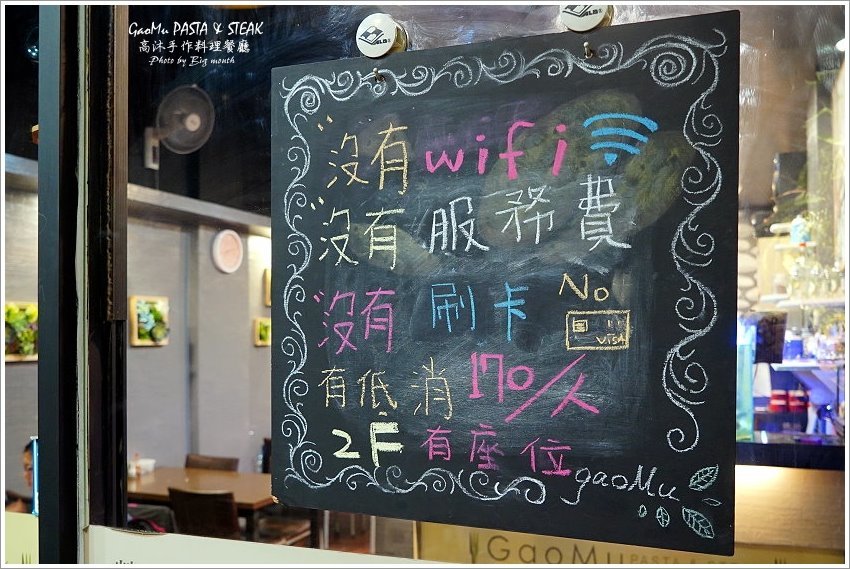 GaoMu PASTA & STEAK
高沐手作料理餐廳
Photo by Big mouth
沒有wifi
沒有服務費
沒有刷卡 No
VISA
有低消170/人
2F有座位
gaoMu
GaoMu PASTA &